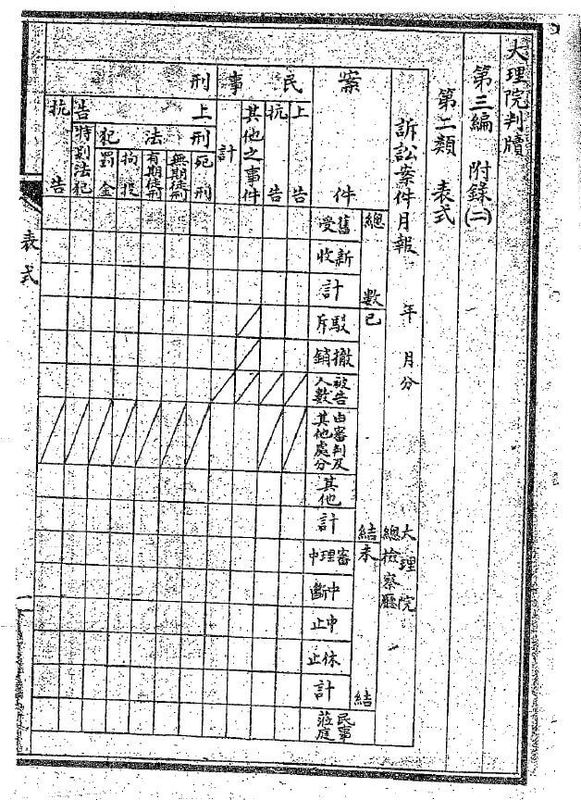 大理院判牘
第三編 附錄(二)
第二類 表式
訴訟案件月報 年 月分
大理院
總檢察廳
案件
總數
已結
未結
舊受
新收
計
駁斥
撤銷
被告人數
由審判及其他處分
其他
計
審理中
中斷
中止
休止
計
民事蒞庭
民事
上告
抗告
其他之事件
計
刑事
上告
刑法犯
死刑
無期徒刑
有期徒刑
拘役
罰金
特別法犯
抗告
表式
一